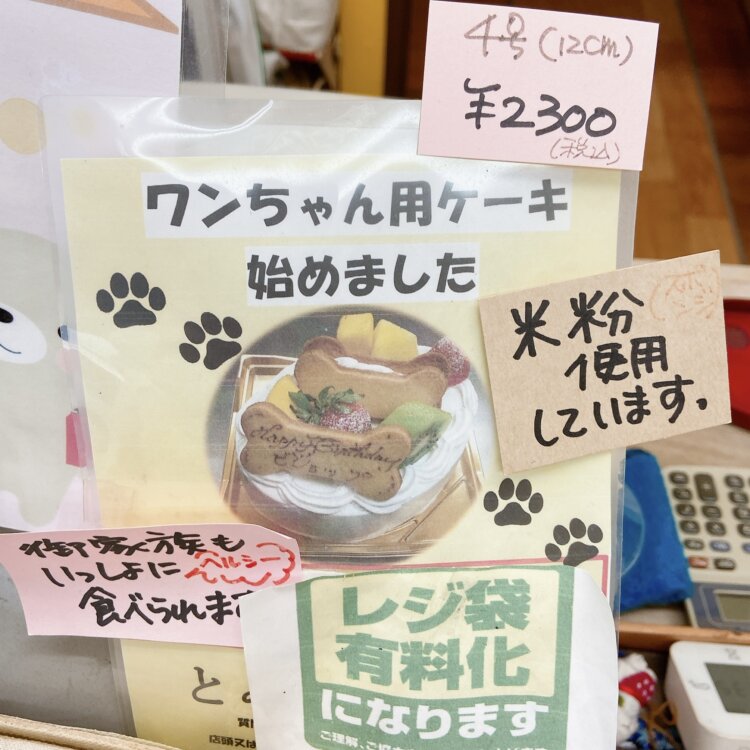 4号(12cm)
¥2300
(税込)
ワンちゃん用ケーキ
始めました
米粉
使用
しています。
Happy Birthday
御家族も
いっしょに
ヘルシー
食べられます
レジ袋
有料化
になります
と
店頭又は